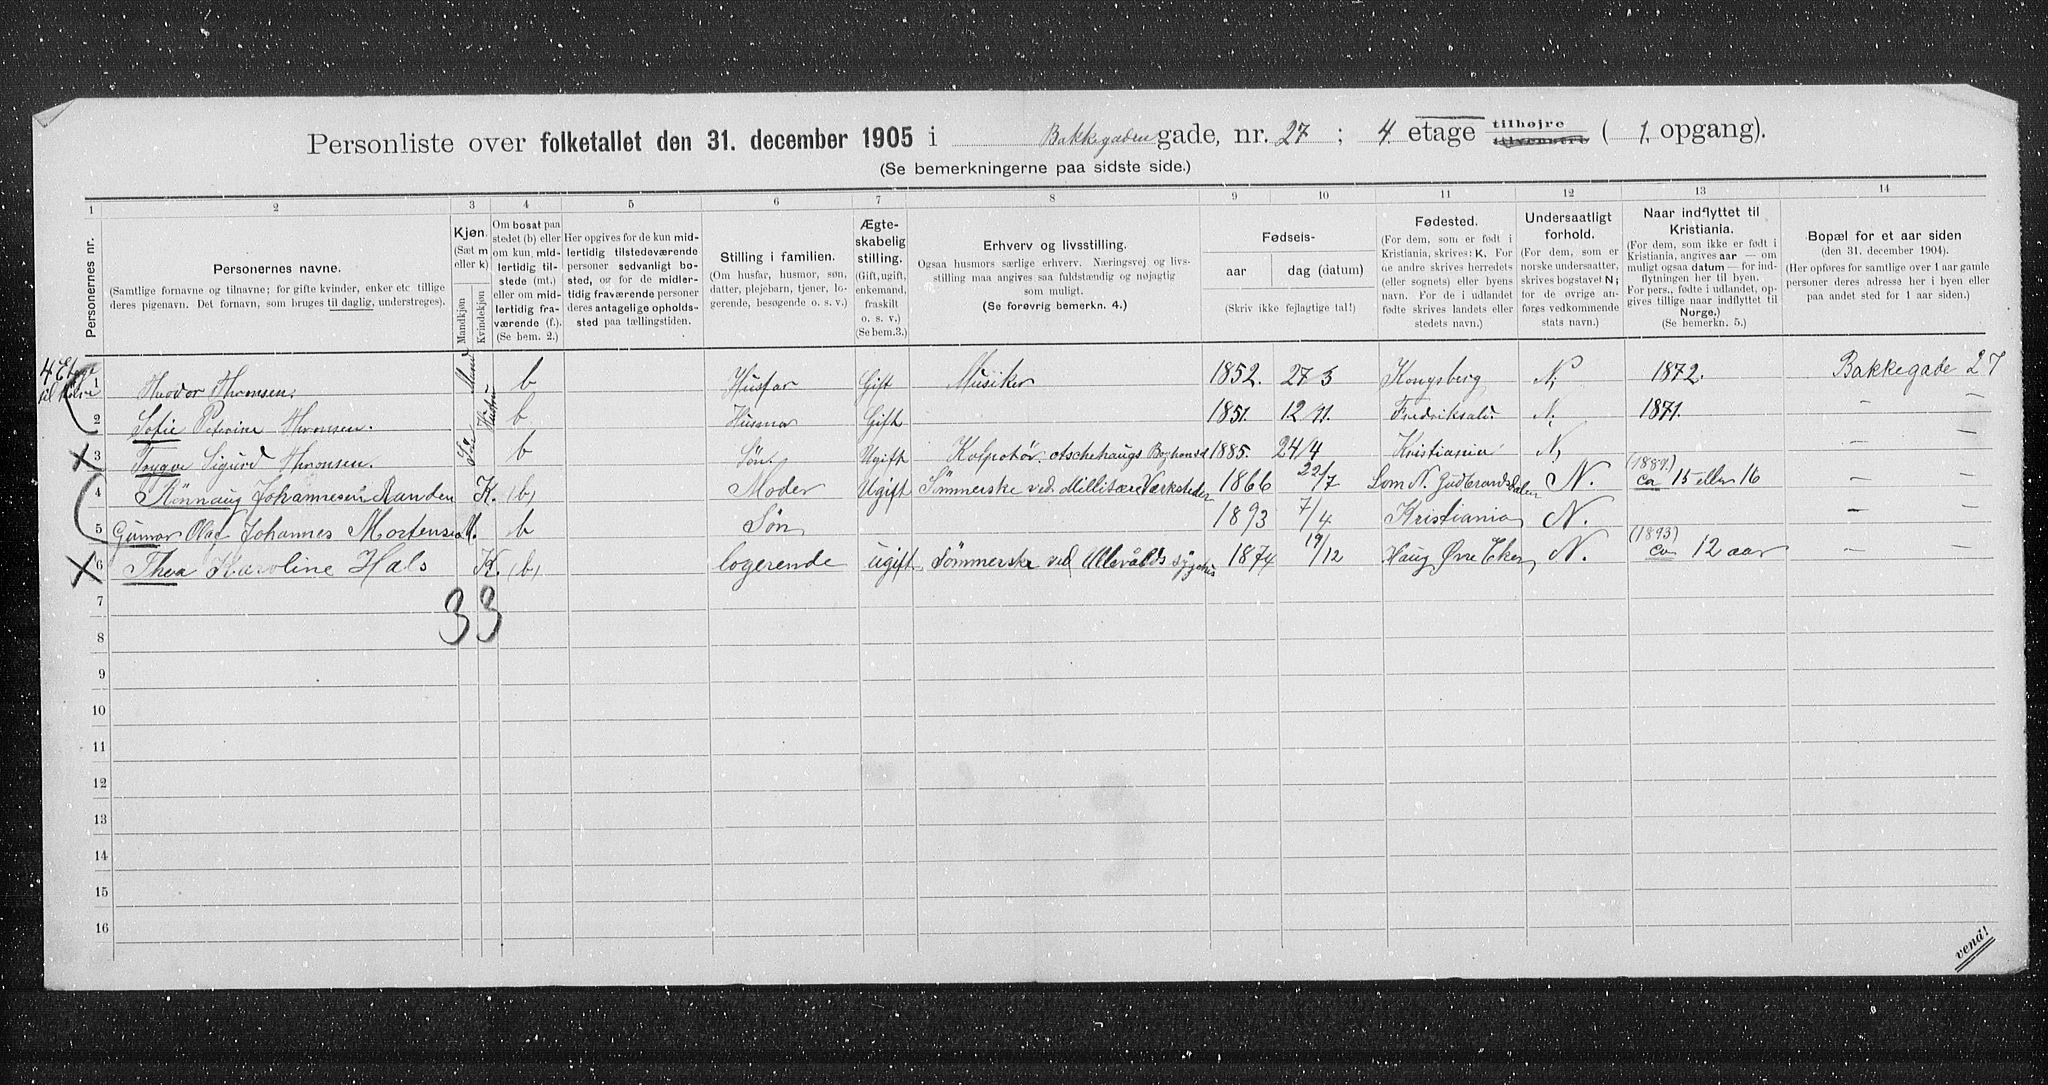 Personliste over folketallet den 31. december 1905 i Bakkegaden gade, nr. 27 ; 4. etage tilhøjre tilvenstre ( 1. opgang).
(Se bemerkningerne paa sidste side.)
1 2 3 4 5 6 7 8 9 10 11 12 13 14
Personernes nr.
Personernes navne.
(Samtlige fornavne og tilnavne; for gifte kvinder, enker etc. tillige
deres pigenavn. Det fornavn, som bruges til daglig, understreges).
Kjøn.
(Sæt m
eller k)
Mandkjøn
Kvindekjøn
Om bosat paa
stedet (b) eller
om kun mid-
lertidig til-
stede (mt.)
eller om mid-
lertidig fra-
værende (f.).
(Se bem. 2.)
Her opgives for de kun mid-
lertidig tilstedeværende
personer sedvanlig bo-
sted, og for de midler-
tidig fraværende personer
deres antagelige opholds-
sted paa tællingstiden.
Stilling i familien.
(Om husfar, husmor, søn,
datter, plejebarn, tjener, lo-
gerende, besøgende o. s. v.)
Ægte-
skabelig
stilling.
(Gift, ugift,
enkemand,
fraskilt
o. s. v.)
(Se bem. 3.)
Erhverv og livsstilling.
Ogsaa husmors særlige erhverv. Næringsvej og livs-
stilling maa angives saa fuldstændig og nøjagtig
som muligt.
(Se forøvrig bemerkn. 4.)
Fødsels-
aar dag (datum)
(Skriv ikke fejlagtige tal!)
Fødested.
(For dem, som er født i
Kristiania, skrives: K. For
de andre skrives herredets
(eller sognets) eller byens
navn. For de i udlandet
fødte skrives landets eller
stedets navn.)
Undersaatligt
forhold.
(For dem, som er
norske undersaatter,
skrives bogstavet N;
for de øvrige an-
føres vedkommende
stats navn.)
Naar indflyttet til
Kristiania.
(For dem, som ikke er født i
Kristiania, angives aar — om
muligt ogsaa datum — for ind-
flytningen her til byen.
For pers., fødte i udlandet, op-
gives tillige naar indflyttet til
Norge.)
(Se bemerkn. 5.)
Bopæl for et aar siden
(den 31. december 1904).
(Her opføres for samtlige over 1 aar gamle
personer deres adresse her i byen eller
paa andet sted for 1 aar siden.)
4 Etage
1 Theodor Thronsen. Mand b Husfar Gift Musiker 1852. 27 3 Kongsberg N, 1872. Bakkegade 27
2 Sofie Peterine Thronsen. Hustru b Husmor Gift 1851. 12 11 Fredrikshald N. 1871. — —
3 Trygve Sigurd Thronsen. Søn b Søn. Ugift Kolportør 1885. 24/4 Kristiania N, — —
4 Rønnaug Johannesen Randen K. (b) Moder Ugift Sömmerske ved Millitære Værksteder 1866 22/7 Lom N. Gudbrandsdalen N. (1889.) ca 15 eller 16 — —
5 Gunnar Olaf Johannes Mortensen M. b Søn 1893 7/4 Kristiania N. — —
6 Thea Karoline Hals K. (b) logerende ugift Sømmerske ved Ullevålds sygehus 1874 19/12 Haug Øvre Eker N. (1893) ca 12 aar — —
3 3
7
8
9
10
11
12
13
14
15
16
vend!